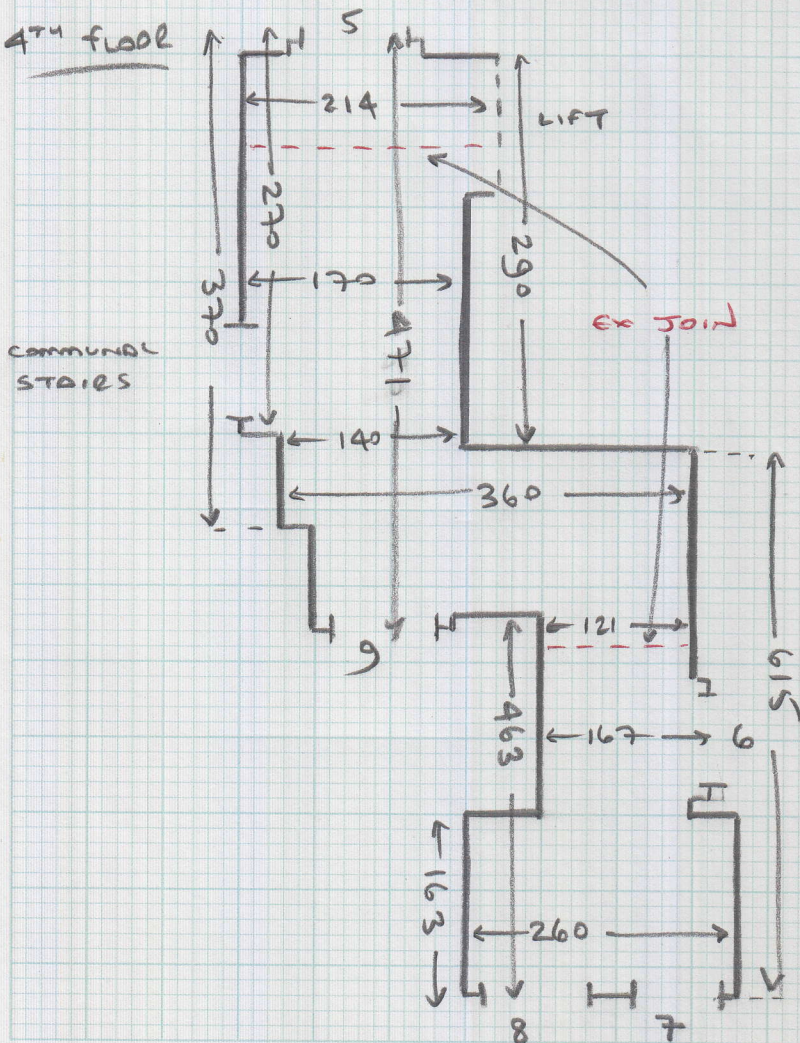 4TH FLOOR
5
214
LIFT
270
290
370
170
471
EX JOIN
COMMUNAL
STAIRS
140
360
121
9
615
463
167
6
163
260
8
7